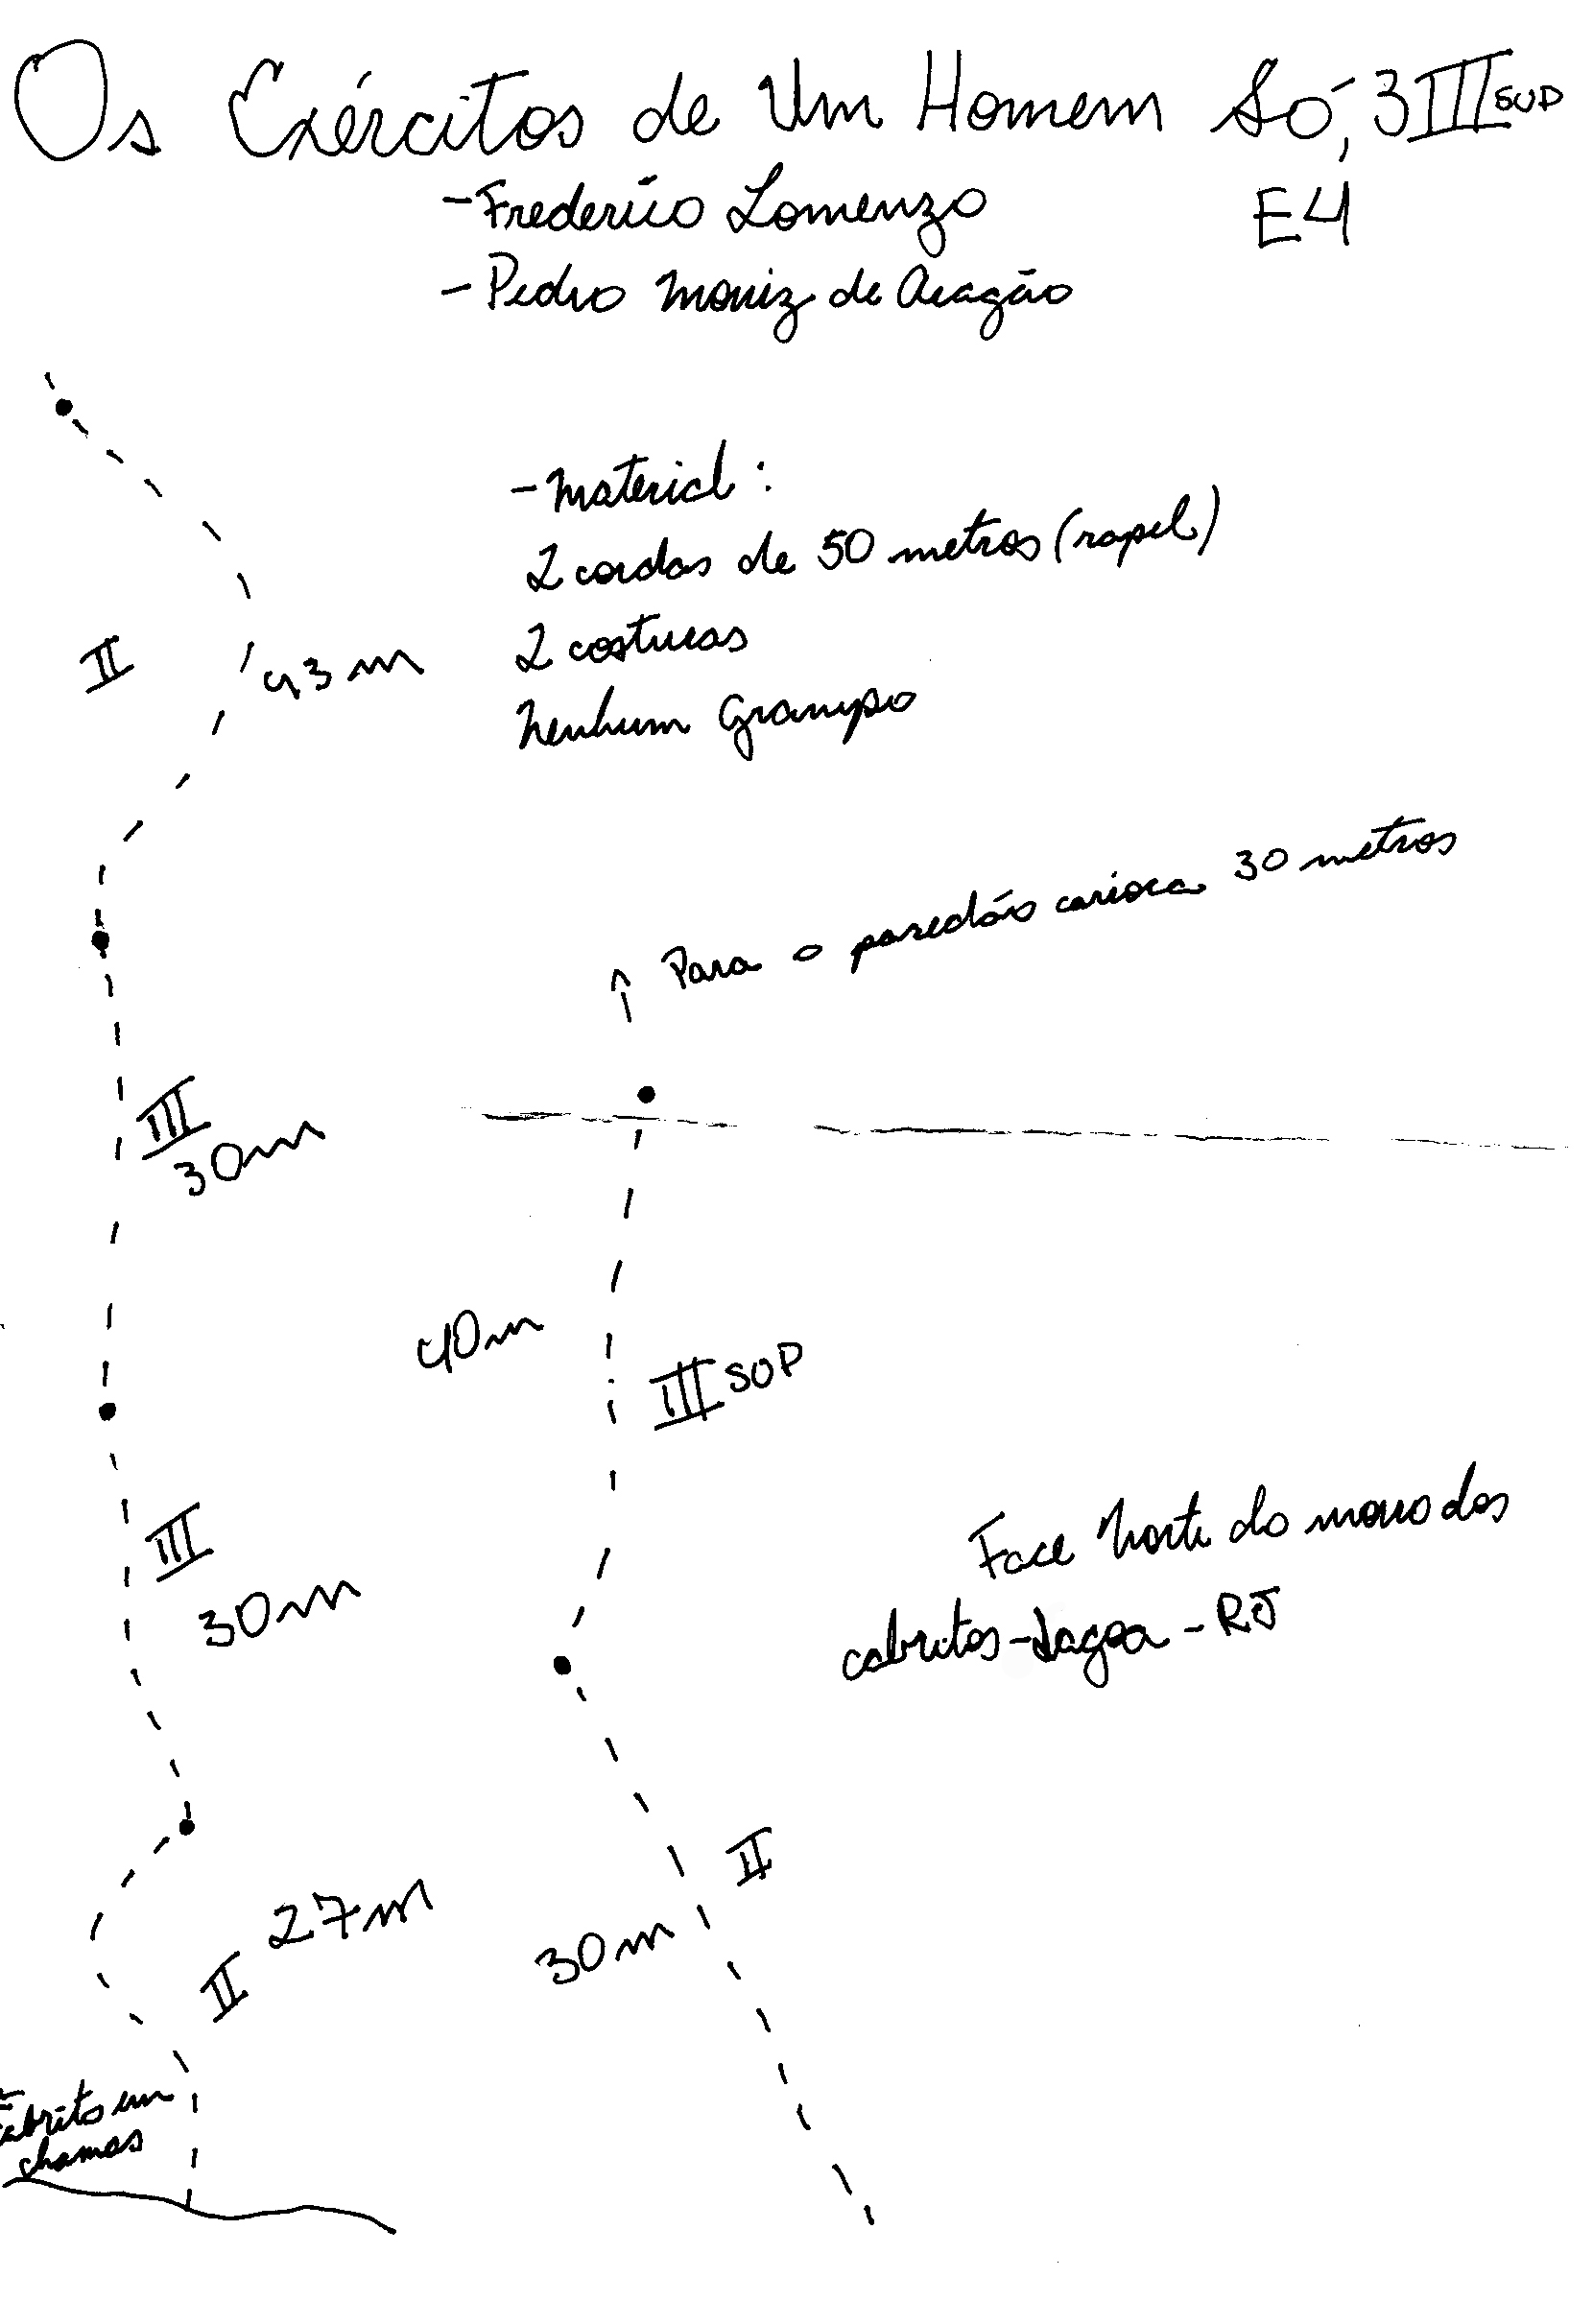 Os Exércitos de Um Homem Só, 3 III SUP
E4
- Frederico Lomenzo
- Pedro Moniz de Aragão
- Material:
2 cordas de 50 metros (rapel)
2 costuras
Nenhum Grampo
II
43 m
Para o paredão carioca 30 metros
III
30m
40m
III SUP
III
30m
Face Norte do morro dos
cabritos - Lagoa - RJ
II
30m
27m
II
Cabrito em
chamas